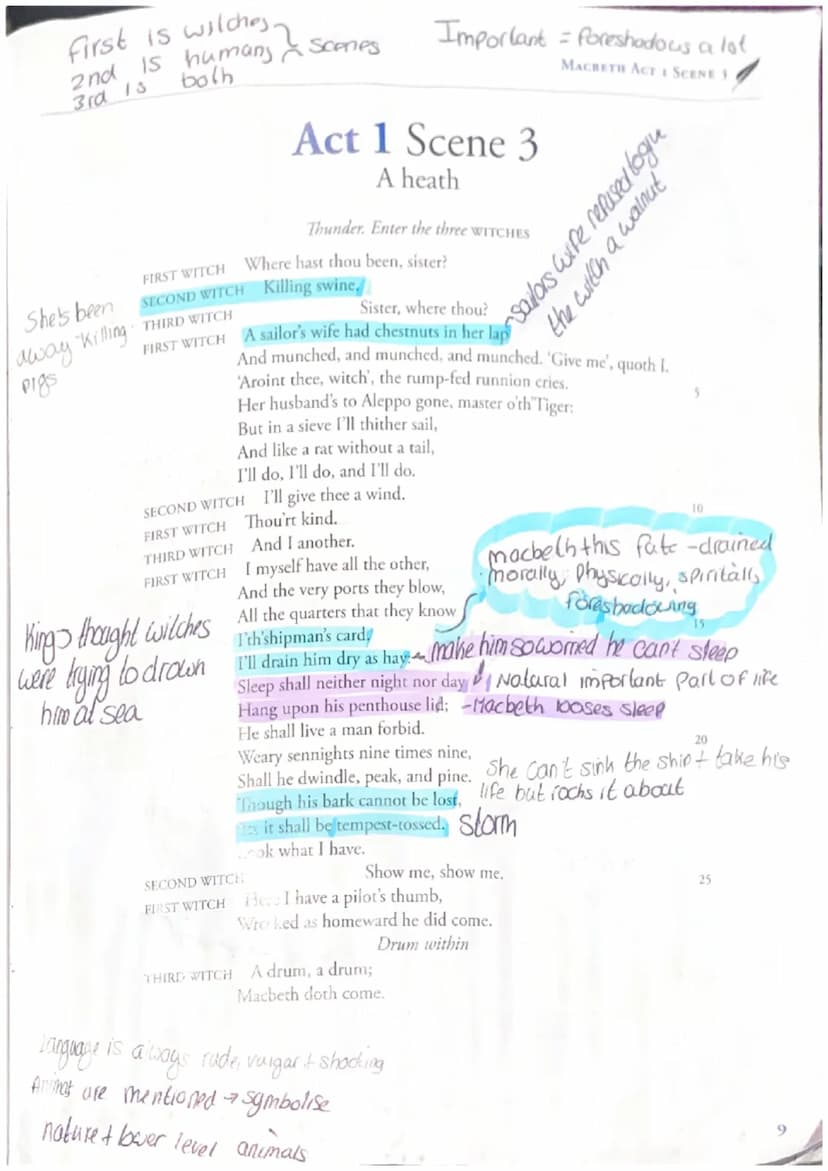 First is witches
2nd is humans scenes
3rd is both
Important = foreshadows a lot
MACBETH ACT 1 SCENE 3
Act 1 Scene 3
A heath
Thunder. Enter the three WITCHES
FIRST WITCH Where hast thou been, sister?
SECOND WITCH Killing swine.
THIRD WITCH Sister, where thou?
FIRST WITCH A sailor's wife had chestnuts in her lap
sailors wife refused
the witch a walnut
She's been
away killing
pigs
And munched, and munched, and munched. 'Give me', quoth I.
'Aroint thee, witch', the rump-fed runnion cries.
5
Her husband's to Aleppo gone, master o'th'Tiger:
But in a sieve I'll thither sail,
And like a rat without a tail,
I'll do, I'll do, and I'll do.
SECOND WITCH I'll give thee a wind.
10
FIRST WITCH Thou'rt kind.
THIRD WITCH And I another.
FIRST WITCH I myself have all the other,
And the very ports they blow,
All the quarters that they know
15
I'th'shipman's card,
macbeth this fate - drained
morally, physically, spiritally
foreshadowing
I'll drain him dry as hay:
make him so worried he cant sleep
Sleep shall neither night nor day
Natural important part of life
Hang upon his penthouse lid;
-Macbeth looses sleep
King thought witches
were trying to drown
him at sea
He shall live a man forbid.
20
Weary sennights nine times nine,
Shall he dwindle, peak, and pine.
She can't sink the ship + take his
life but rocks it about
Though his bark cannot be lost,
it shall be tempest-tossed.
Storm
what I have.
SECOND WITCH Show me, show me.
25
FIRST WITCH Here I have a pilot's thumb,
Wrecked as homeward he did come.
Drum within
THIRD WITCH A drum, a drum;
Macbeth doth come.
Language is always rude, vulgar + shocking
are mentioned → symbolise
nature + lower level animals
9